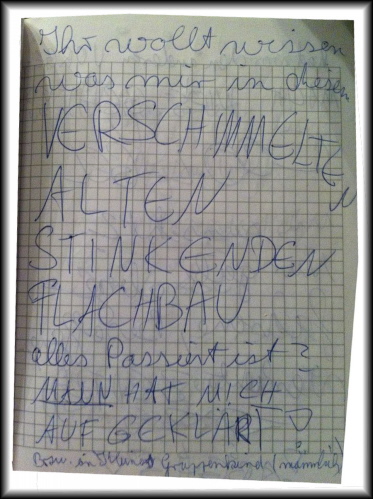 Ihr wollt wissen
was mir in diesen
VERSCHIMMELTEN
ALTEN
STINKENDEN
FLACHBAU
alles Passiert ist?
MANN HAT MICH
AUFGEKLÄRT
Bzw. ein Gruppenkind (männlich)